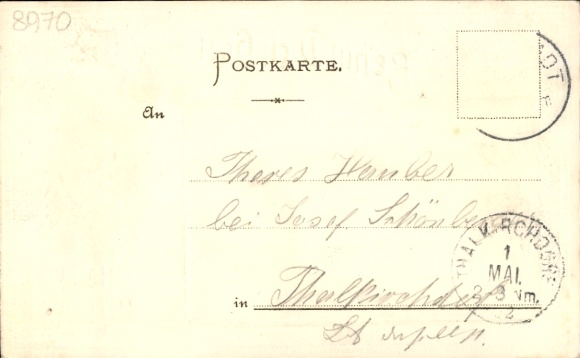 8970
POSTKARTE.
An
Theres Hauber
bei Josef Schönber
in Thalkirchdorf
THALKIRCHDORF
1
MAI.
2-3 Nm.
ADT